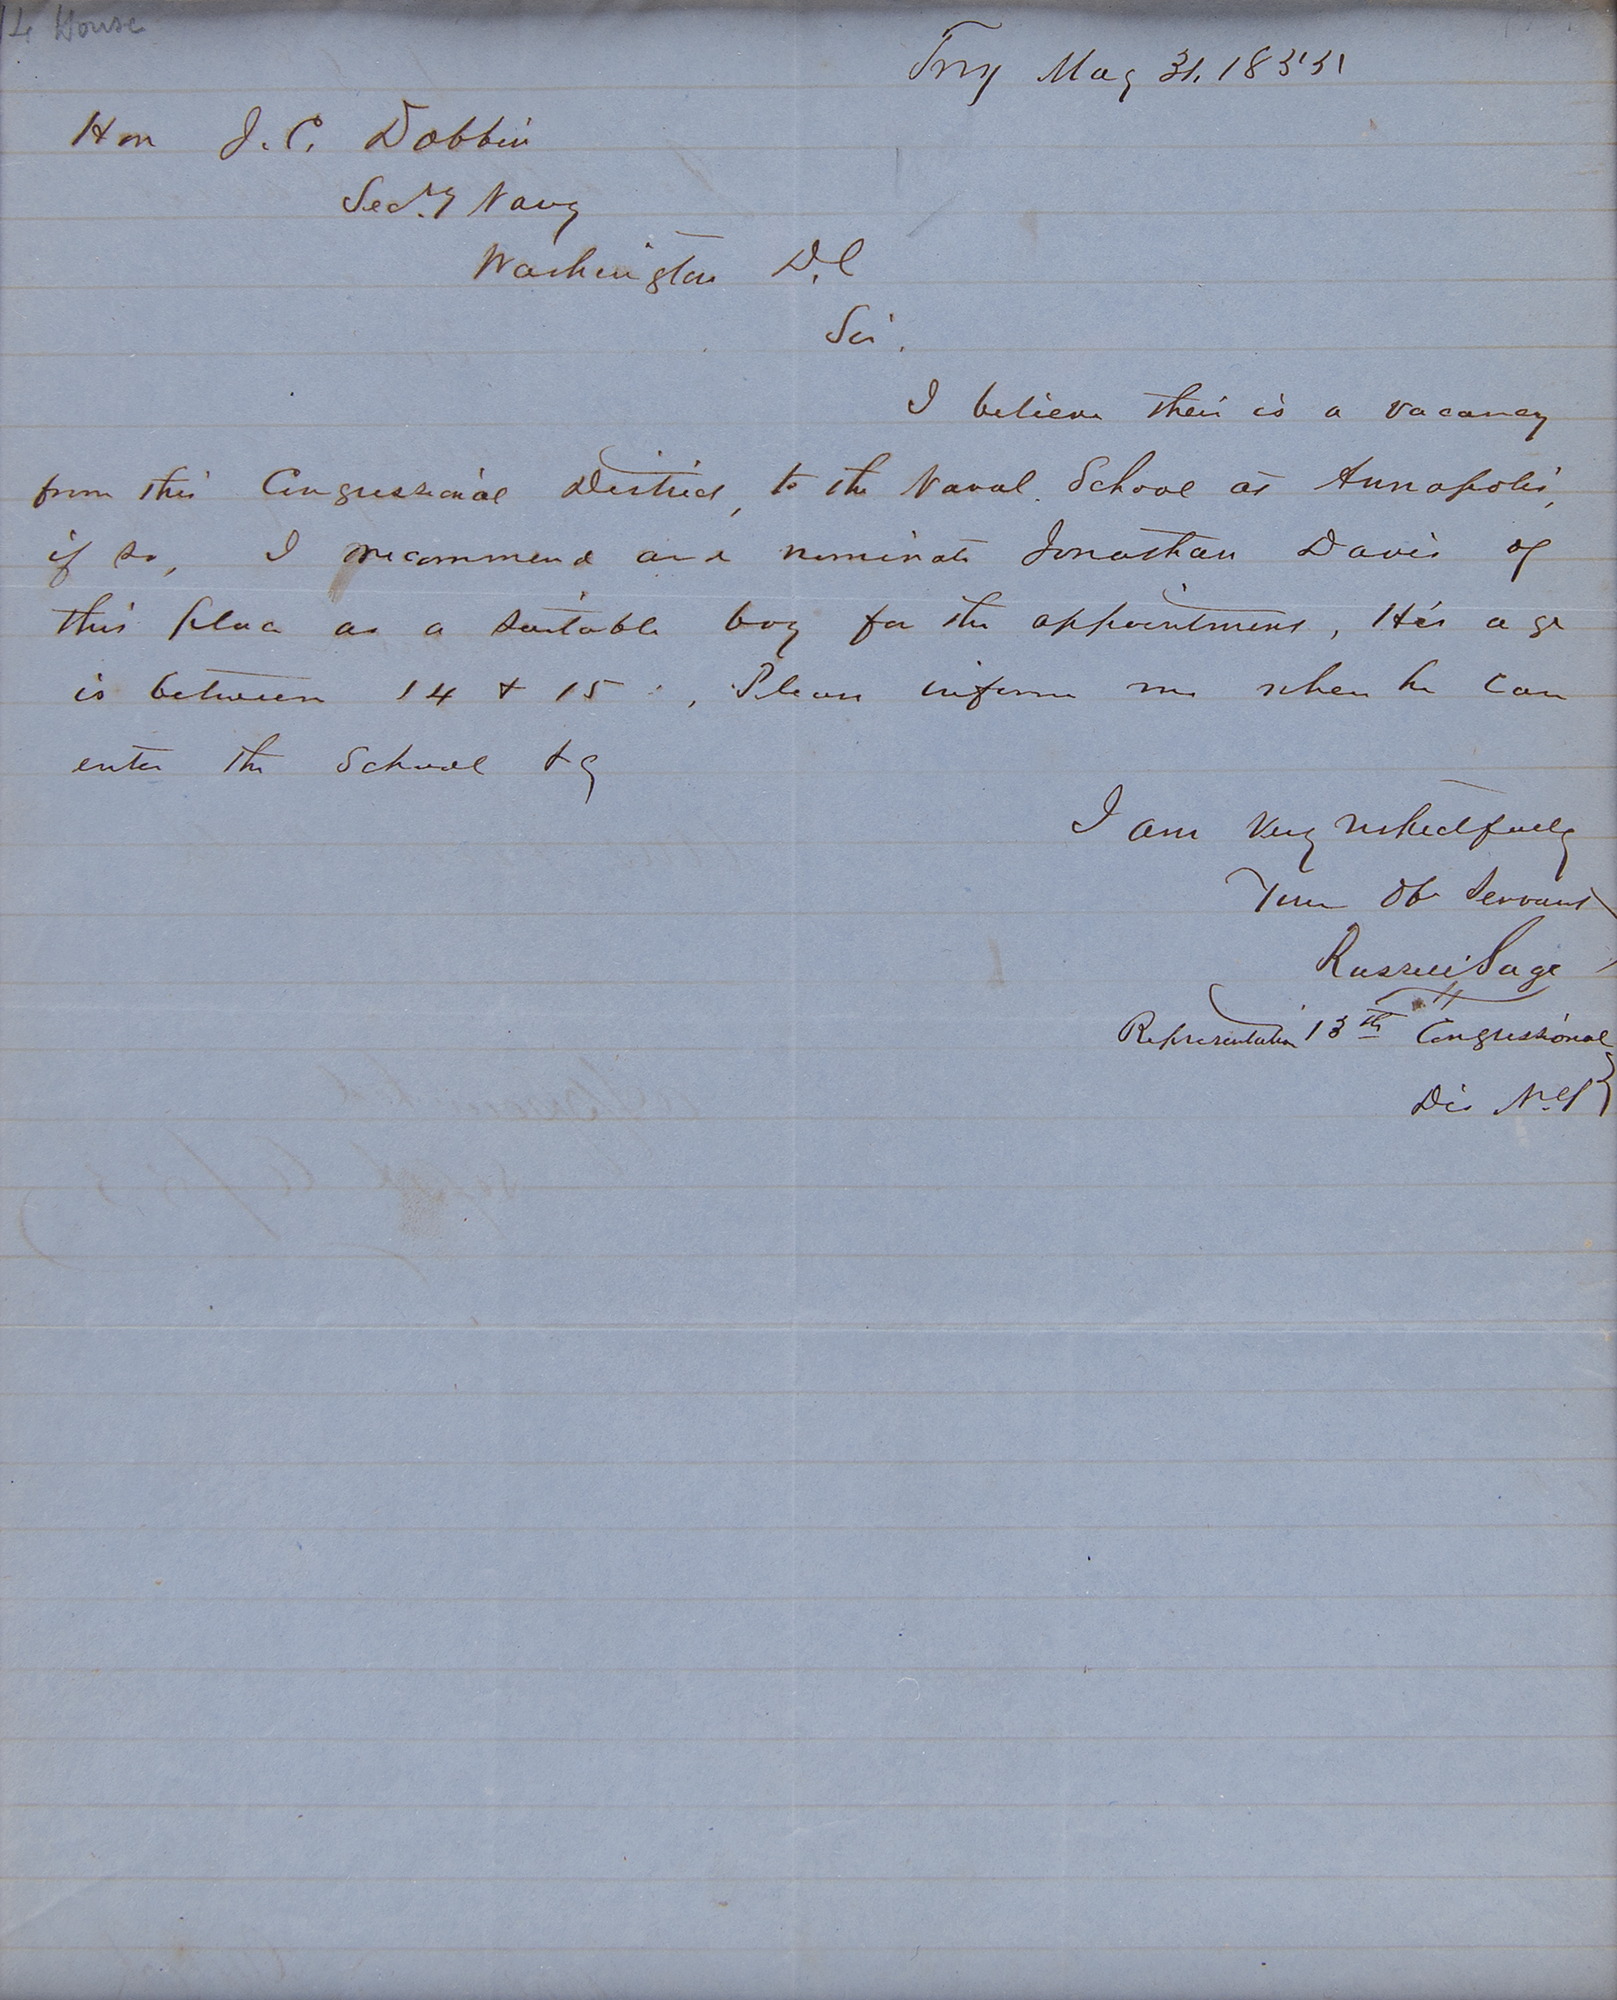 14 House
Troy May 31, 1853
Hon J. C. Dobbin
Secry Navy
Washington D.C
Sir.
I believe their is a vacancy
from this Congressional District, to the Naval School at Annapolis,
if so, I recommend and nominate Jonathan Davis of
this place as a suitable boy for the appointment, His age
is between 14 & 15, Please inform me when he can
enter the School &c
I am Very respectfully
Your Obt Servant
Russell Sage
Representative 13th Congressional
Dis N.Y